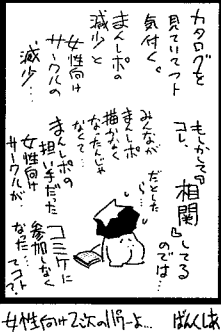 カタログを
見ていてフト
気付く。
まんレポの
減少と
女性向け
サークルの
減少…
もしかして
コレ、『相関』してる
のでは…
だとした
ら…
みんなが
まんレポ
描かなく
なったんじゃ
なくて…
まんレポの
担い手だった
女性向け
サークルが
コミケに
参加しなく
なった…てコト?
女性向け2次のパワーよ…
ばんくは